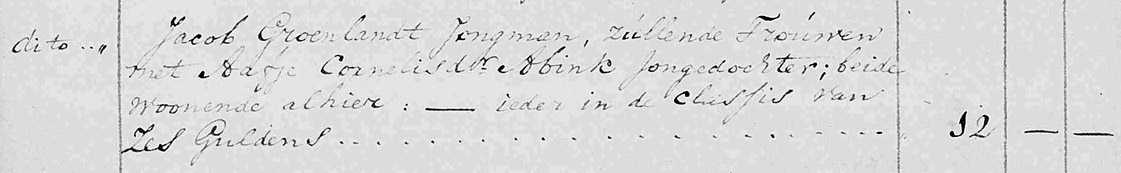 dito .. „ Jacob Groenlandt Jongman, züllende Troúwen
met Aafje Cornelisdr Abink Jongedochter; beide
woonende alhier : — ieder in de classis van
Zes Guldens . . . . . . . . . . . . . . . . . . 12 — —